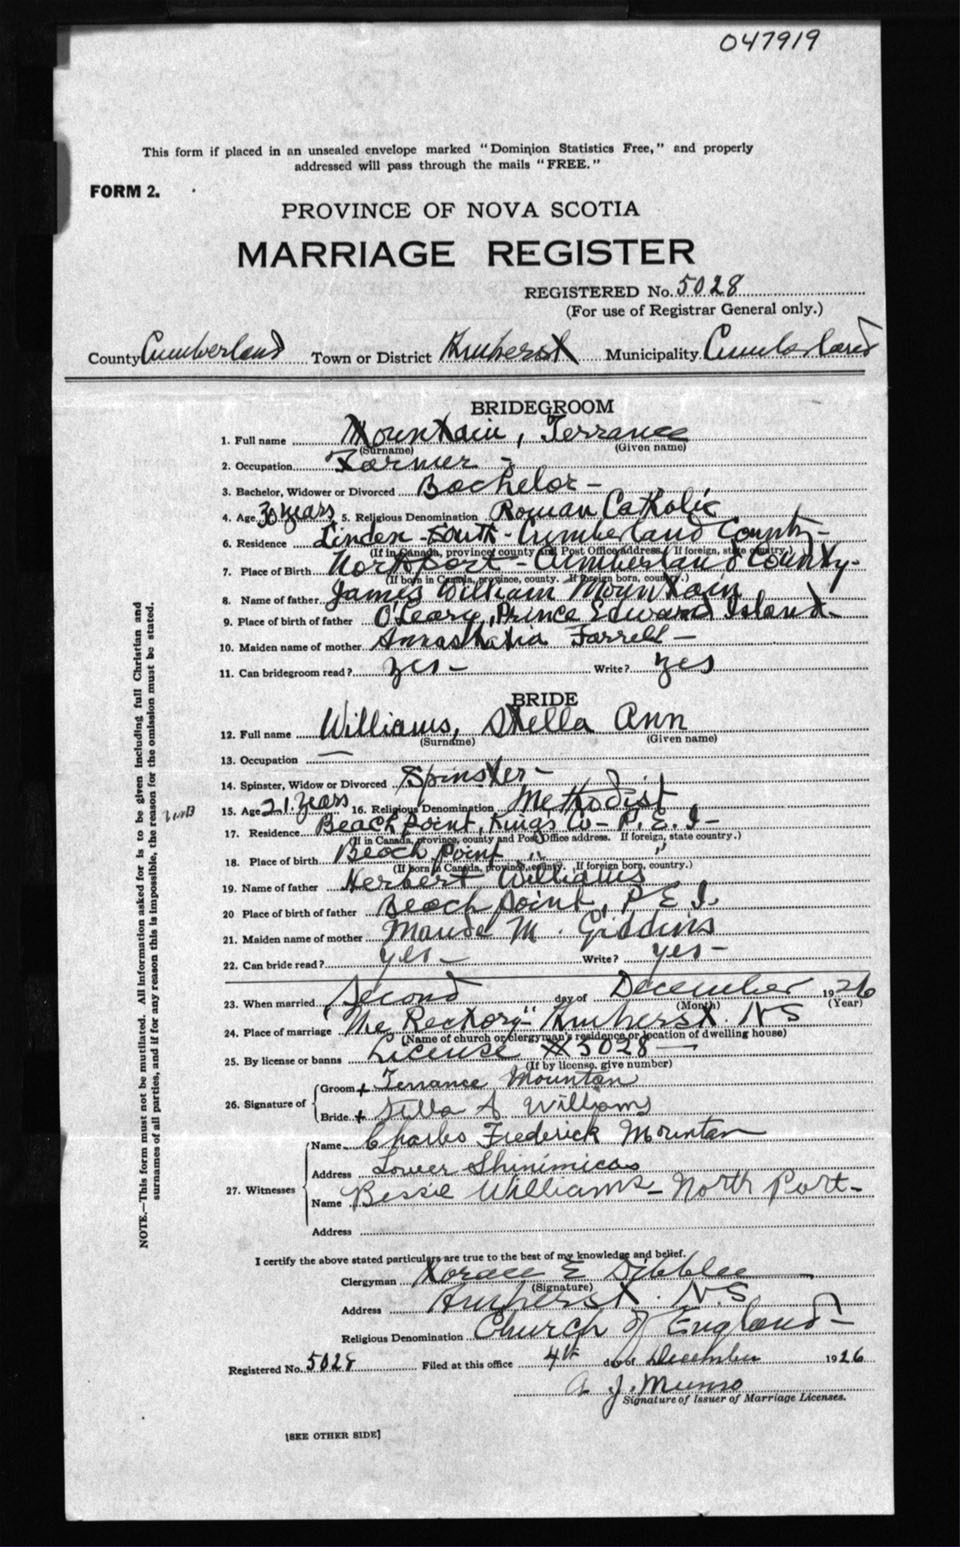 047919
This form if placed in an unsealed envelope marked "Dominion Statistics Free," and properly
addressed will pass through the mails "FREE."
FORM 2.
PROVINCE OF NOVA SCOTIA
MARRIAGE REGISTER
REGISTERED No. 5028
(For use of Registrar General only.)
County Cumberland Town or District Amherst Municipality Cumberland
BRIDEGROOM
1. Full name Mountain, Terrance
(Surname) (Given name)
2. Occupation Farmer -
3. Bachelor, Widower or Divorced Bachelor -
4. Age 30 years 5. Religious Denomination Roman Catholic
6. Residence Linden - South - Cumberland County -
(If in Canada, province, county and Post Office address. If foreign, state country.)
7. Place of Birth Northport - Cumberland County -
(If born in Canada, province, county. If foreign born, country.)
8. Name of father James William Mountain
9. Place of birth of father O'Leary, Prince Edward Island -
10. Maiden name of mother Annasthatia Farrell -
11. Can bridegroom read? yes - Write? yes
BRIDE
12. Full name Williams, Stella Ann
(Surname) (Given name)
13. Occupation —
14. Spinster, Widow or Divorced Spinster -
15. Age 21 years 16. Religious Denomination Methodist
17. Residence Beach point, Kings Co - P.E.I -
(If in Canada, province, county and Post Office address. If foreign, state country.)
18. Place of birth Beach Point " "
(If born in Canada, province, county. If foreign born, country.)
19. Name of father Herbert Williams
20 Place of birth of father Beach point, P E I.
21. Maiden name of mother Maude M. Giddins
22. Can bride read? yes - Write? yes -
23. When married Second day of December 1926
(Month) (Year)
24. Place of marriage "The Rectory" Amherst. N S
(Name of church or clergyman's residence or location of dwelling house)
25. By license or banns License # 5028 —
(If by license, give number)
26. Signature of
Groom + Terrance Mountan
Bride + Stella A Williams
27. Witnesses
Name Charles Frederick Mountan
Address Lower Shinimicas
Name Bessie Williams - North Port -
Address
I certify the above stated particulars are true to the best of my knowledge and belief.
Clergyman Horace E Dibblee
(Signature)
Address Amherst. N.S
Religious Denomination Church of England -
Registered No. 5028 Filed at this office 4th day of December 1926
A J. Munro
Signature of Issuer of Marriage Licenses.
[SEE OTHER SIDE]
NOTE.—This form must not be mutilated. All information asked for is to be given including full Christian and
surnames of all parties, and if for any reason this is impossible, the reason for the omission must be stated.